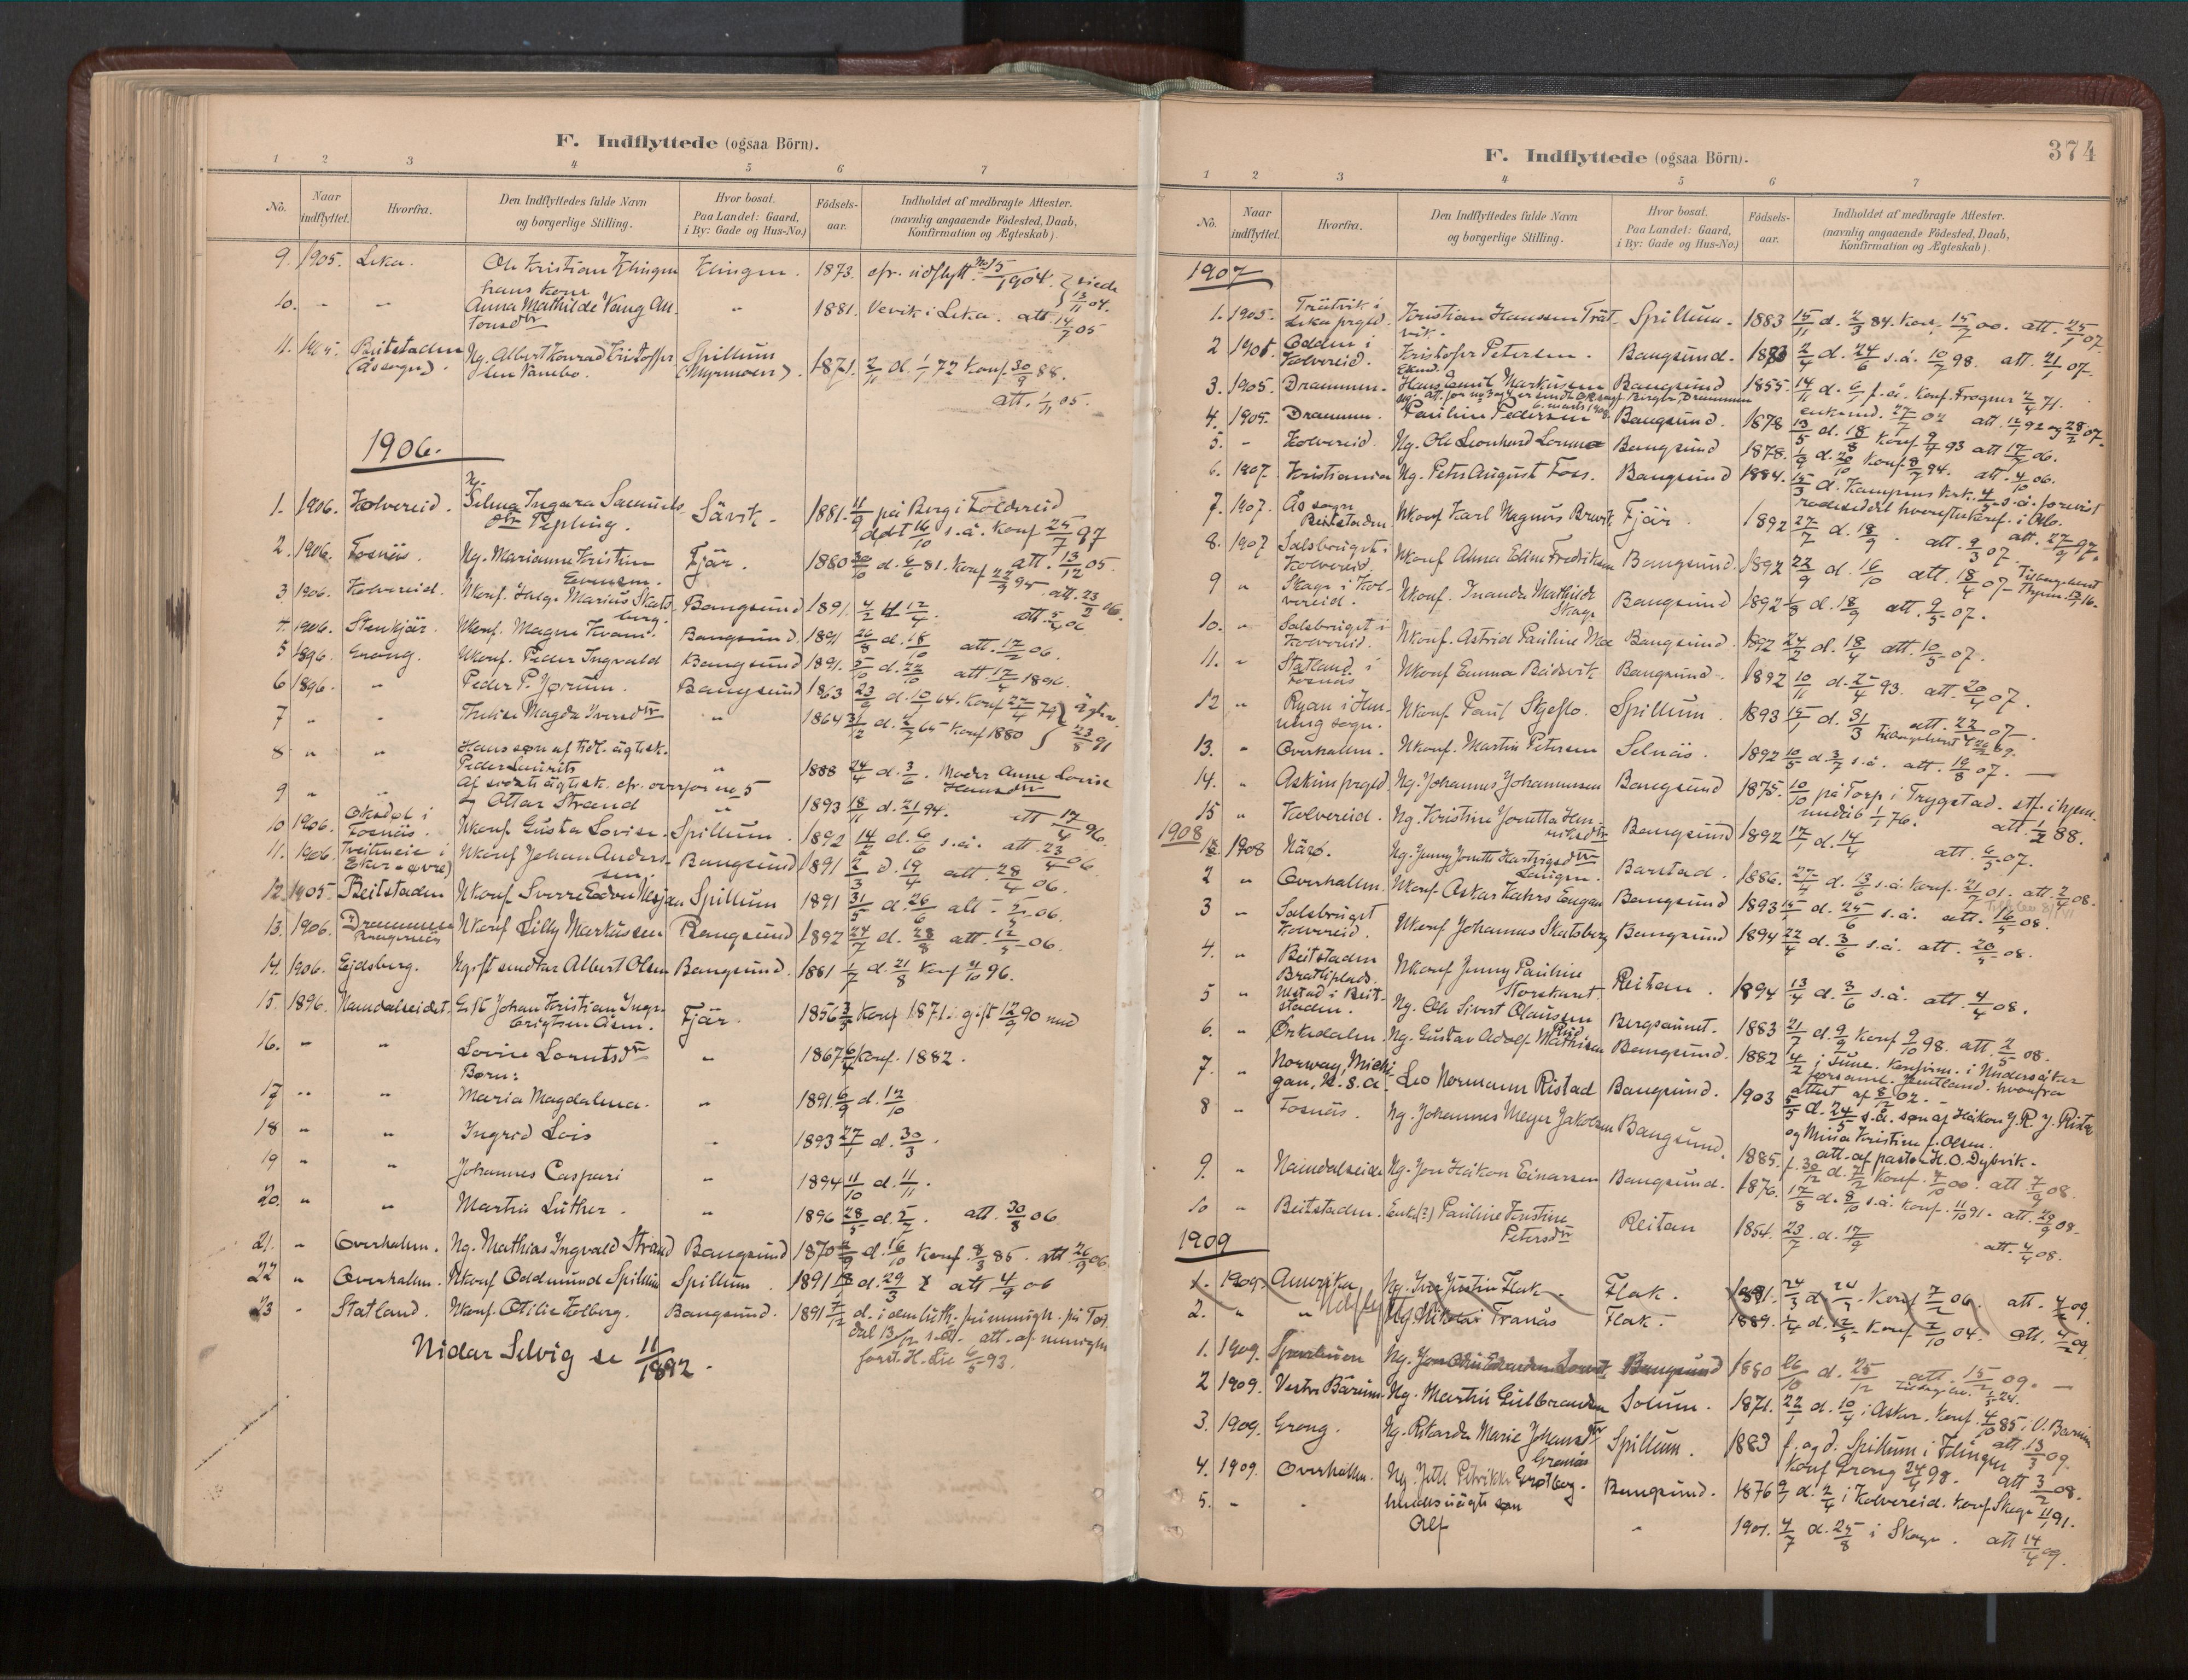 F. Indflyttede (ogsaa Börn).
1 2 3 4 5 6 7
No. Naar indflyttet. Hvorfra. Den Indflyttedes fulde Navn og borgerlige Stilling. Hvor bosat. Paa Landet: Gaard, i By: Gade og Hus-No.) Födsels-aar. Indholdet af medbragte Attester. (navnlig angaaende Födested, Daab, Konfirmation og Ægteskab).
9. 1905. Leka. Ole Kristian Klingen Klingen. 1873. cfr. udflytt. No 15/1904.
hans kone
10. - - Anna Mathilde Vang An- " 1881. Vevik i Leka. att. 14/7 05
tonsdtr
11. 1905. Beitstaden Ng. Albert Konrad Kristoffer Spillum 1871. 2/11 d. 1/1 72 konf. 30/9 88.
(Åssogn). sen Vanebo. (Myrmoen).
att. 1/11 05.
1906.
Ng.
1. 1906. Kolvereid. Selma Ingvara Samuels- Sävik. 1881. 11/9 på Berg i Foldereid
dtr Pepling. döbt 16/10 s.å. konf 25/7 97
att. 13/12 05.
2. 1906. Fosnäs. Ng. Marianne Kristine Fjär. 1880 30/10 d. 6/6 81. konf 22/9 95. att. 23/2 06.
Evensen.
3. 1906. Kolvereid. Ukonf. Helge Marius Skats- Bangsund 1891. 4/2 d 12/4. att. 5/4 06
berg.
4. 1906. Stenkjär. Ukonf. Magne Kvam. Bangsund. 1891 26/8 d. 18/10 att. 17/2 06.
5 1896. Grong. Ukonf. Peder Ingvald Bangsund 1891. 5/10 d. 22/10 att. 17/4 1896.
6 1896. " Peder P. Jørum. Bangsund 1863 23/9 d. 10/1 64. konf 27/4 79
7 " " Thrine Magda Iversdtr " 1864 31/12 d. 2/7 65 konf 1880 23/8 91
8 " " Hans søn af tidl. ägtesk.
Peder Laurits " 1888 24/4 d. 3/6. Moder Anne Lovise
Hansdtr
9 " " Af sidste ägtesk. cfr. ovenfor no 5
og Ottar Strand " 1893 18/11 d. 21/1 94. att 17/4 96.
10 1906. Oksdøl i Fosnäs. Ukonf. Gusta Lovise. Spillum. 1892 14/2 d. 6/6 s.å. att. 23/4 06.
11. 1906. Ukonf Johan Anders- Bangsund 1891 2/3 d. 19/4 att. 28/4 06.
Eker (øvre) sen.
12. 1905. Beitstaden Ukonf. Sverre Edvin Nesjan Spillum 1891 31/5 d. 26/6
13. 1906. Drammen Bragernäs Ukonf Lilly Markussen Bangsund 1892 24/7 d. 28/8 att. 12/5 06.
14. 1906. Ejdsberg. Ng. ift sendt att Albert Olsen Bangsund. 1881 1/7 d. 21/8 konf 4/10 96.
15. 1896. Namdalseidet. G.K Johan Kristian Inge- Fjär. 1856 3/5 konf 1871: gift 12/9 90 med
brigtsen Åsen.
16. " " Lovise Lorntsdtr " 1867 6/4 konf. 1882.
Børn:
17 " " Maria Magdalena. " 1891. 6/9 d. 12/10
18 " " Ingrid Lois " 1893 27/1 d. 30/3.
19 " " Johannes Caspari " 1894 11/10 d. 11/11.
20. " " Martin Luther. " 1896 28/5 d. 5/7. att. 30/8 06.
21. " Overhalm. Ng. Mathias Ingvald Strand Bangsund 1870 4/9 d. 16/10 konf. 8/3 85. att 26/9 06
22 " Overhalm. Ukonf Oddmund Spillum Spillum. 1891 18/ d. 29/3 att 4/9 06
23 " Statland. Ukonf. Otilie Tolberg. Bangsund. 1891 7/12 d. i den luth. frimenigh. på Tot-
dal 13/12 s.å. att. af menigh
forst. H. Lie 6/5 93.
Nidar Selvig se 11/1892.
F. Indflyttede (ogsaa Börn).
374
1 2 3 4 5 6 7
No. Naar indflyttet. Hvorfra. Den Indflyttedes fulde Navn og borgerlige Stilling. Hvor bosat. Paa Landet: Gaard, i By: Gade og Hus-No.) Födsels-aar. Indholdet af medbragte Attester. (navnlig angaaende Födested, Daab, Konfirmation og Ægteskab).
1907
1. 1905. Trätvik i Leka prgld. Kristian Hanssen Trät- Spillum. 1883 15/11 d. 2/3 84. konf. 15/7 00. att. 25/1 07.
vik.
2 1905. Odden i Kolvereid. Kristofer Petersen. Bangsund. 1883 2/4 d. 24/6 s.å. 10/7 98. att. 21/1 07.
3. 1905. Drammen. Hans Emil Markussen Bangsund 1855. 14/11 d. 6/1 f.å. konf. Frogner 2/4 71.
4. 1905. Drammen. Pauline Pedersen Bangsund. 1878
5. - Kolvereid. Ng. Ole Leonhard Lornæs Bangsund 1878.
6. 1907. Kristiania Ng. Peter August Foss. Bangsund 1884.
7. 1907. Ås sogn Beitstaden Ukonf Karl Magnus Brevik Fjär. 1892 27/7 d. 18/9. att. 9/3 07.
8. 1907 Salsbruget i Kolvereid. Ukonf Anna Edine Fredriksen Bangsund. 1892 22/9 d. 16/10 att. 18/4 07.
9 " Skage i Kol- vereid. Ukonf. Inanda Mathilde Skage Bangsund 1892 1/8 d. 18/9 att. 2/5 07.
10. " Salsbruget i Kolvereid. Ukonf. Astrid Pauline Moe Bangsund. 1892 24/2 d. 18/4 att. 10/5 07.
11. " Statland i Fosnäs Ukonf Emma Bådsvik Bangsund. 1892 10/11 d. 2/4 93. att. 20/4 07.
12 " Ryan i Hen- ning sogn. Ukonf. Paul Skjeflo. Spillum. 1893 15/1 d. 31/3 att. 22/ 07.
13. " Overhalm. Ukonf. Martin Petersen Selnäs. 1892 10/5 d. 3/7 s.å. att. 19/8 07.
14. " Askim prgld Ng. Johannes Johannessen Bangsund 1875. 10/10 på Torp i Trygstad. stf. i hjem.
medib 1/1 76. att. 1/2 88.
15 " Kolvereid. Ng. Kristine Jonetta Hen- riksdtr Bangsund 1892 17/1 d. 14/4 att. 6/5 07.
1908
1 1908 Närø. Ng. Jenny Jonette Hartvigsdtr Barstad. 1886. 27/4 d. 13/6 s.å. konf. 21/7 01. att. 2/4 08.
2 " Overhalm. Ukonf. Asker Kahrs Engan Bangsund 1893 15/ d. 25/6 s.å. att. 16/5 08.
3 " Salsbruget Kolvereid. Ukonf Johannes Skatsberg Bangsund 1894 22/4 d. 3/6 s.å. att. 20/ 08.
4. " Beitstaden Bratliplads. Ukonf Jenny Pauline Reitan. 1894 13/4 d. 3/6 s.å. att. 4/4 08.
5 " Ulstad i Beit- staden. Ng. Ole Sivert Olaussen Bergsaunet. 1883 21/7 d. 9/9 konf 9/10 98. att. 2/5 08.
6. " Orkedalen. Ng. Gustav Adolf Mathisen Bangsund. 1882 14/2 i Tune. Konfirm. i Undersåker
7. " Norway, Michi- gan, U.S.A. Leo Normann Ristad Bangsund. 1903 5/5 d. 24/5 s.å. søn af Håkon J. R. J. Ristad
og Mina Kristine f. Olsen.
att. af pastor H. O. Dybvik.
8 " Fosnäs. Ng. Johannes Meyer Jakobsen Bangsund. 1885. f. 30/12 d. 7/2 konf. 7/10 00. att 7/9 08.
9. " Namdalseide Ng. Jon Håkon Einarsen Bangsund. 1876. 17/8 d. 8/10 s.å. konf. 11/10 91. att. 29/9 08.
10 " Beitstaden. Enke(?) Pauline Kirstine Petersdtr Reitan 1854. 23/7. d. 17/9 att. 4/4 08.
1909
1. 1909. Amerika Ng. Iver Justin Flak. Flak. 1891. 24/3 d 24/ konf 7/2 06. att. 4/2 09.
2. " " Ng. Nikolai Tranås Flak. 1889. 1/4 d. 12/5 konf 7/10 04. att. 4/2 09.
Udflytt
1. 1909. Ng. Bangsund 1880 26/10 d. 25/12 att. 15/2 09.
2 1909. Vestre Bärum Ng. Martin Gulbrandsen Solum. 1871. 22/1 d. 10/4 i Asker. Konf. 4/10 85 i V. Bärum
att. 13/3 09.
3. 1909. Grong. Ng. Rikarda Marie Johansdtr Granäs Spillum. 1883 f. og d. Spillum i Klingen
konf Grong 24/4 98. att 3/2 08.
4. 1909. Overhallen. Ng. Jette Petrikke Grotberg. Bangsund. 1876 9/1 d. 2/4 i Kolvereid. Konf Skage 11/ 91.
5. - - hendes uägte søn
Alf " 1901. 4/7 d. 25/8 i Skage. att 14/4 09.